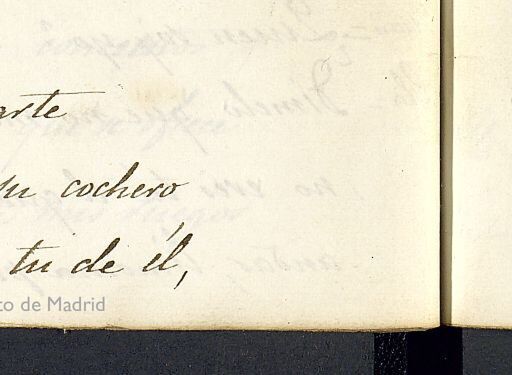 arte
su cochero
tu de él,
to de Madrid